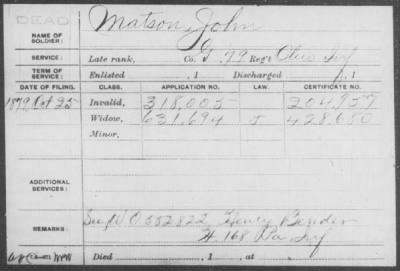 DEAD
NAME OF SOLDIER: Matson, John
SERVICE: Late rank, Co. G, 79 Reg't Ohio Inf
TERM OF SERVICE: Enlisted , 1 Discharged , 1
DATE OF FILING. CLASS. APPLICATION NO. LAW. CERTIFICATE NO.
1879 Oct 25 Invalid, 318,005 204,957
Widow, 631,694 428,650
Minor,
ADDITIONAL SERVICES:
REMARKS: See W O 332822 Henry Bender
H. 168 Pa Inf
Died , 1 , at